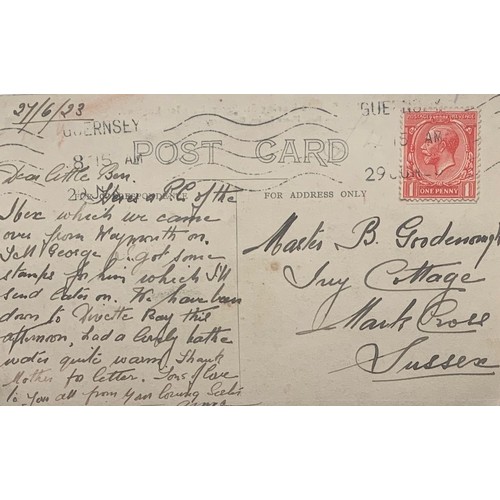 27/6/23
GUERNSEY
8.15 AM
GUERNSEY
15 AM
29 JUN
POSTAGE REVENUE
ONE PENNY
POST CARD
FOR CORRESPONDENCE
FOR ADDRESS ONLY
Dear little Ben.
Here's a P.C. of the
Ibex which we came
over from Weymouth on.
Tell George I got some
stamps for him which I'll
send later on. We have been
down to Divette Bay this
afternoon, had a lovely bathe
water quite warm. Thank
Mother for letter. Tons of love
to you all from your loving Sister
Master B. Goodenough
Ivy Cottage
Mark Cross
Sussex